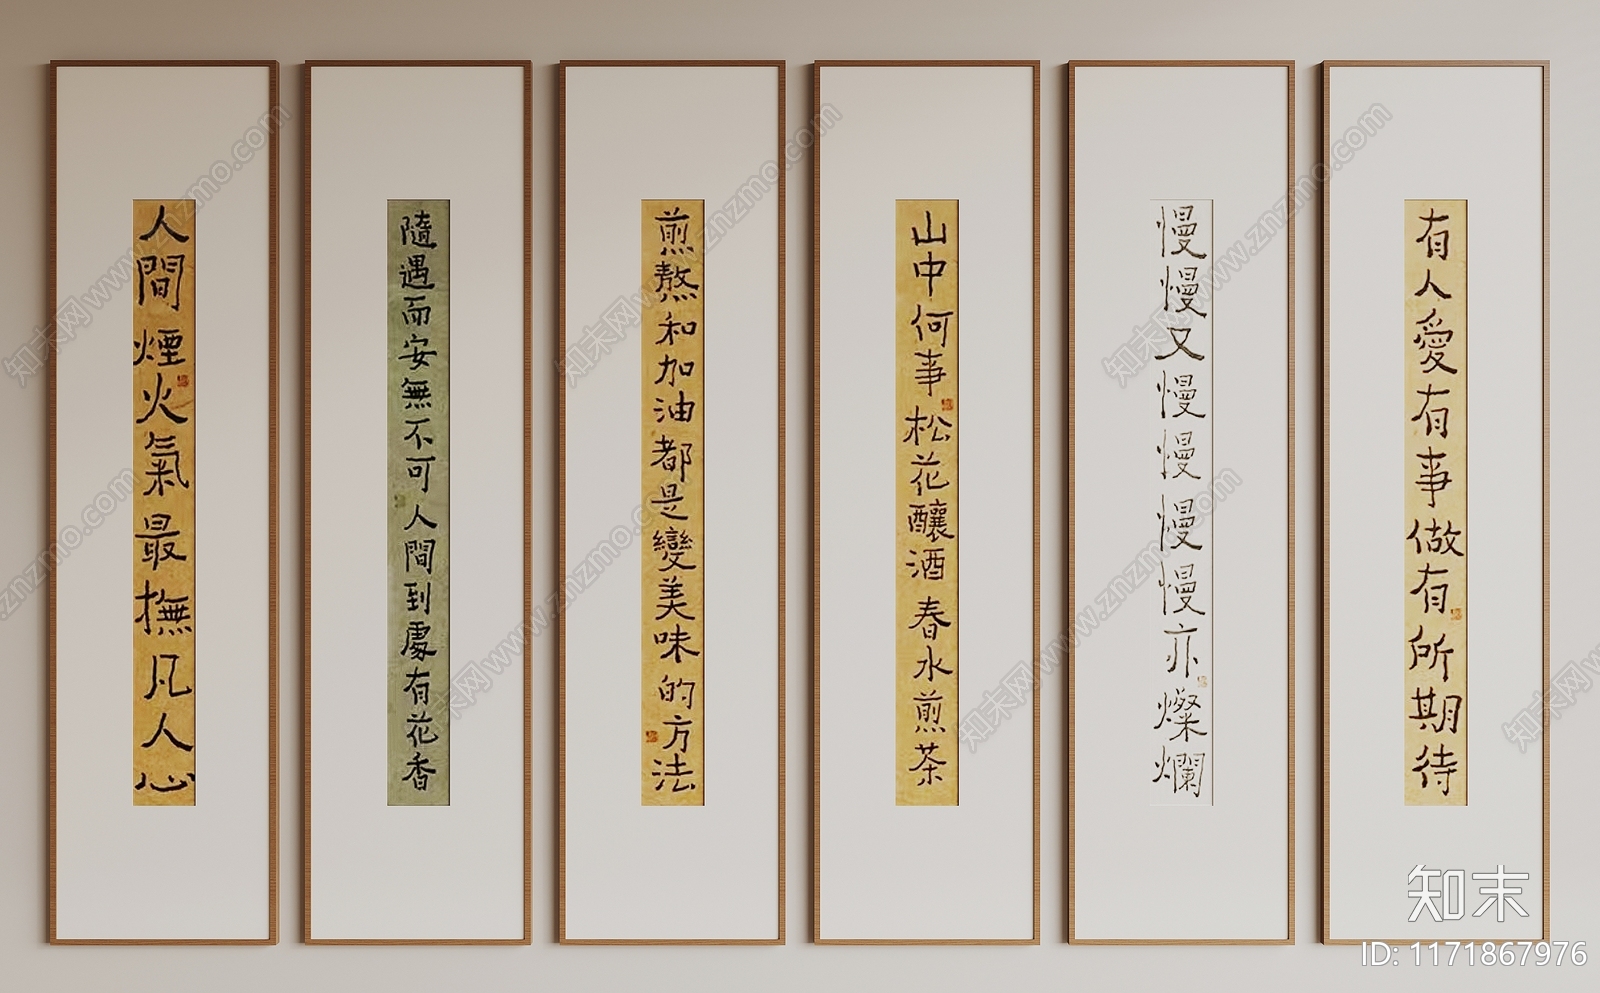 人間煙火氣最撫凡人心
隨遇而安無不可人間到處有花香
煎熬和加油都是變美味的方法
山中何事松花釀酒春水煎茶
慢慢又慢慢慢慢亦燦爛
有人愛有事做有所期待
知末网www.znzmo.com
知末
ID: 1171867976